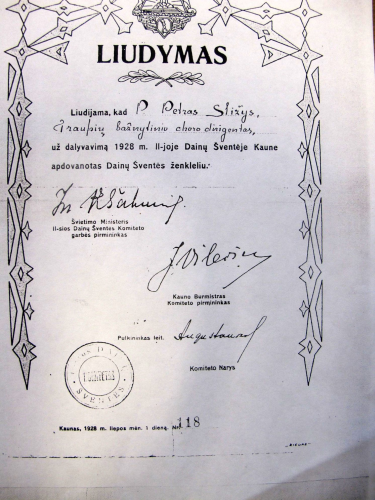 LIUDYMAS
Liudijama, kad P. Petras Stižys,
Traupių bažnytinio choro dirigentas,
už dalyvavimą 1928 m. II-joje Dainų Šventėje Kaune
apdovanotas Dainų Šventės ženkleliu.
Švietimo Ministeris
II-sios Dainų Šventės Komiteto
garbės pirmininkas
Kauno Burmistras
Komiteto pirmininkas
Pulkininkas leit.
Komiteto Narys
ŠVENTĖS
Kaunas, 1928 m. liepos mėn. 1 dieną. Nr. 118